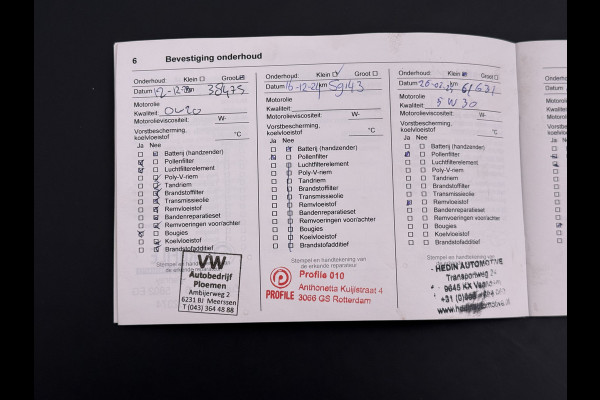 6 Bevestiging onderhoud
Onderhoud: Klein Groot
Datum 12-12- km 38475
Motorolie
Kwaliteit: 0W20
Motorolieviscositeit: W-
Vorstbescherming,
koelvloeistof °C
Ja Nee
Batterij (handzender)
Pollenfilter
Luchtfilterelement
Poly-V-riem
Tandriem
Brandstoffilter
Transmissieolie
Remvloeistof
Bandenreparatieset
Remvoeringen voor/achter
Bougies
Koelvloeistof
Brandstofadditief
Stempel en handtekening van
de erkende reparateur
VW
Autobedrijf
Ploemen
Ambijerweg 2
6231 BJ Meerssen
T (043) 364 48 88
Onderhoud: Klein Groot
Datum 16-12-21 km 59143
Motorolie
Kwaliteit:
Motorolieviscositeit: W-
Vorstbescherming,
koelvloeistof °C
Ja Nee
Batterij (handzender)
Pollenfilter
Luchtfilterelement
Poly-V-riem
Tandriem
Brandstoffilter
Transmissieolie
Remvloeistof
Bandenreparatieset
Remvoeringen voor/achter
Bougies
Koelvloeistof
Brandstofadditief
Stempel en handtekening van
de erkende reparateur
PROFILE
Profile 010
Anthonetta Kuijlstraat 4
3066 GS Rotterdam
Onderhoud: Klein Groot
Datum 26-02- km 61631
Motorolie
Kwaliteit: 5W30
Motorolieviscositeit: W-
Vorstbescherming,
koelvloeistof °C
Ja Nee
Batterij (handzender)
Pollenfilter
Luchtfilterelement
Poly-V-riem
Tandriem
Brandstoffilter
Transmissieolie
Remvloeistof
Bandenreparatieset
Remvoeringen voor/achter
Bougies
Koelvloeistof
Brandstofadditief
Stempel en handtekening van
de erkende reparateur
- HEDIN AUTOMOTIVE
Transportweg
9645 KX Veendam
+31 (0)